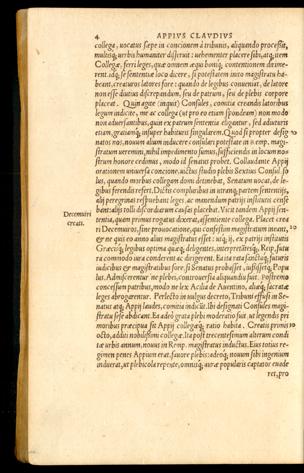 4 APPIVS CLAVDIVS
collega, vocatus sæpe in concionem à tribunis, aliquando processit,
multisq; verbis humaniter disseruit: vehementer placere sibi, atq; item
Collegæ, ferri leges, quæ omnem æqui boniq; contentionem dirime-
rent. idq; se sententiæ loco dicere, si potestatem into magistratu ha-
beant, creaturos latores fore: quando de legibus conueniat, de latore
non esse diutius discrepandum, seu de patrum, seu de plebis corpore
placeat. Quin agite (inquit) Consules, comitia creandis latoribus
legum indicite, me ac collega (et pro eo etiam spondeam) non modo
non aduersantibus, quin ex patrum sententia elogatur, sed adiuturis
etiam, gratiamq; insuper habituris singularem. Quod si propter desig
natos nos, nouum alium inducere consulari potestate in R omp. magi-
stratum veremini, nihil impedimento sumus, sufficiendis in locum no-
strum honore cedimus, modo id senatus probet. Collaudante Appij
orationem vniuersa concione, auctus studio plebis Sextius Consul so-
lus, quando morbus collegam domi detinebat, Senatum vocat, de le-
gibus ferendis refert. Dictis compluribus in vtranq; partem sententijs,
alij peregrinas respuebant leges, ac manendum patrijs institutis cense
bant: alijs tolli discordiarum causas placebat. Vicit tandem Appij sen-
tentia, quam primum rogatus dixerat, assentiente collega. Placet crea
Decemuiri creati.
ri Decemuiros, sine prouocatione, qui consessum magistratum ineant, 20
& ne quis eo anno alius magistratus esset: vtiq; ij, ex patrijs institutis
Græcisq; legibus optima quæq; diligentes, interpretesq; Reip. futu
ra commodo iura conderent ac dirigerent. Ea ita rata sanctaq; futuris
iudicibus & magistratibus fore, si Senatus probasset, iussissetq; Popu
lus. Admisceretur ne plebs, controuersia aliquandiu fuit. Postremo
concessum patribus, modo ne lex Acilia de Auentino, aliæq; sacratæ
leges abrogarentur. Perlecto in vulgus decreto, Tribuni effusi in Se-
natus atq; Appij laudes, comitia indicūt. Ibi designati Consules magi-
stratu sese abdicant. Ea adeò grata plebi moderatio fuit, vt legendis pri
moribus præcipua sit Appij collegæq; ratio habita. Creatis primis 30
octo, addūt nobilissimi collegæ. Ita post trecentesimum alterum condi
tæ vrbis annum, nouus in Romp. magistratus inductus. Eius totius re
gimen penes Appium erat, fauore plebis: adeoq; nouum sibi ingenium
induerat, vt plebicola repente, omnisq; auræ popularis captator euade
ret, pro